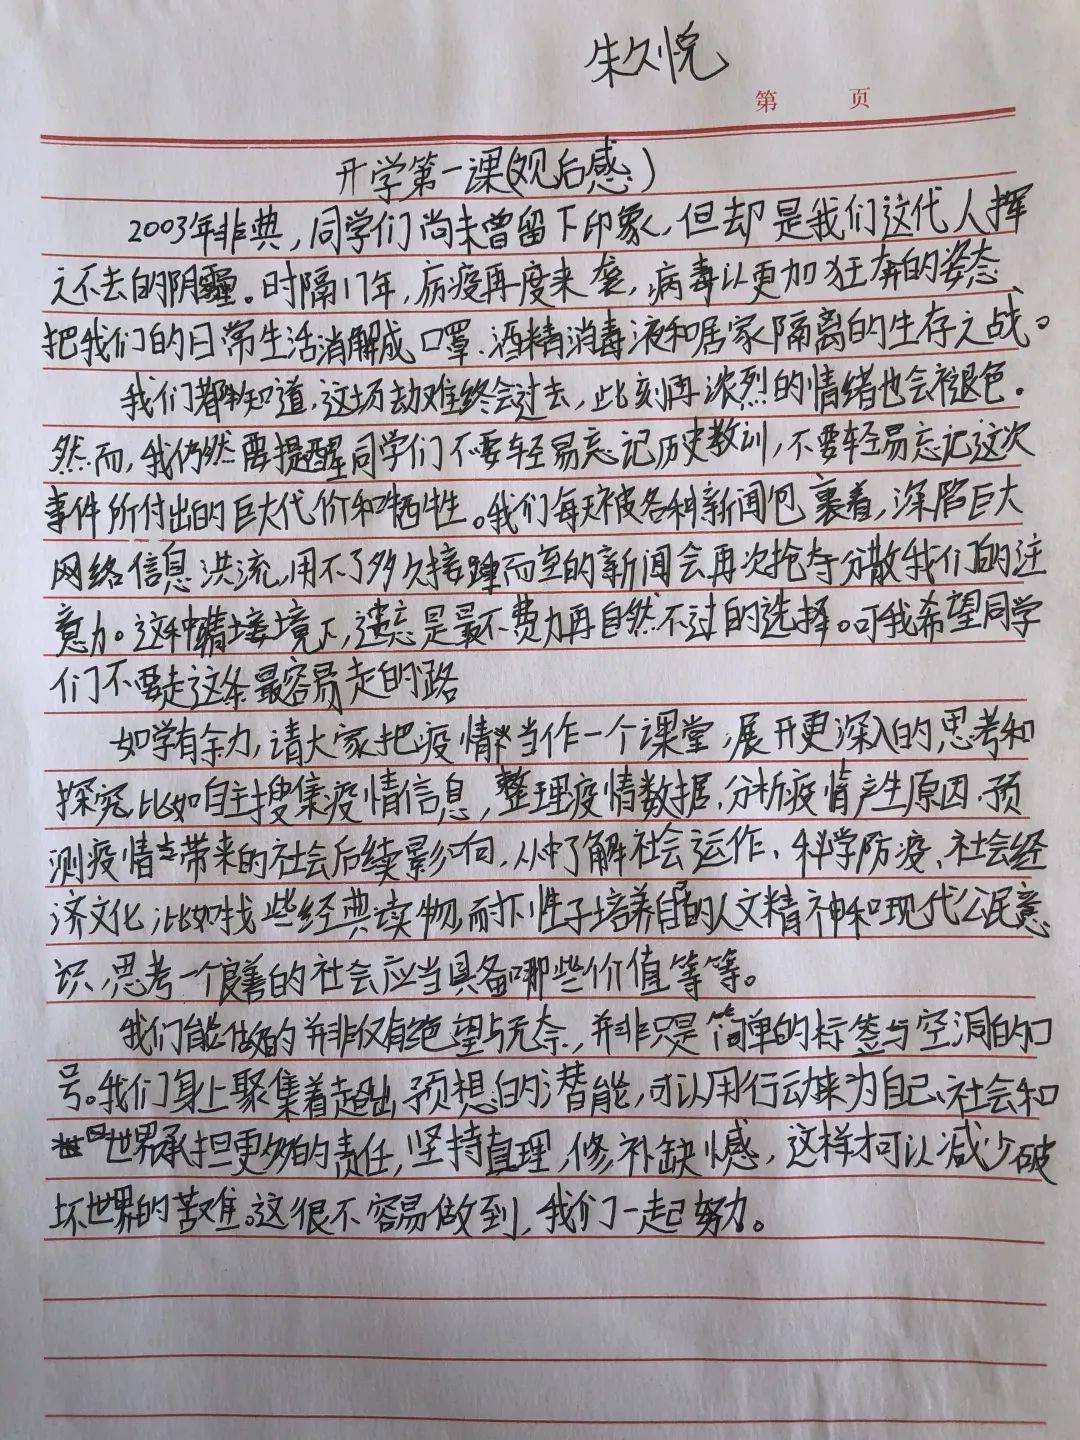 朱久悦
第 页
开学第一课(观后感)
2003年非典,同学们尚未曾留下印象,但却是我们这代人挥
之不去的阴霾。时隔17年,疠疫再度来袭,病毒以更加狂奔的姿态、
把我们的日常生活消解成口罩、酒精消毒液和居家隔离的生存之战。
我们都知道,这场劫难终会过去,此刻再浓烈的情绪也会被退色。
然而,我仍然要提醒同学们不要轻易忘记历史教训,不要轻易忘记这次
事件所付出的巨大代价和牺牲。我们每天被各种新闻包裹着,深陷巨大
网络信息洪流,用不了多久接踵而至的新闻会再次抢夺分散我们的注
意力。这种情境下,遗忘是最不费力再自然不过的选择。可我希望同学
们不要走这条最容易走的路
如学有余力,请大家把疫情当作一个课堂,展开更深入的思考和
探究,比如自主搜集疫情信息,整理疫情数据,分析疫情产生原因,预
测疫情带来的社会后续影响,从中了解社会运作、科学防疫、社会经
济文化,比如找些经典读物,耐下性子培养自己的人文精神和现代公民意
识,思考一个良善的社会应当具备哪些价值等等。
我们能做的并非仅有绝望与无奈,并非只是简单的标签与空洞的口
号。我们身上聚集着超出预想的潜能,可以用行动来为自己、社会和
世界承担更多的责任,坚持真理,修补缺憾,这样才可以减少破
坏世界的苦难。这很不容易做到,我们一起努力。